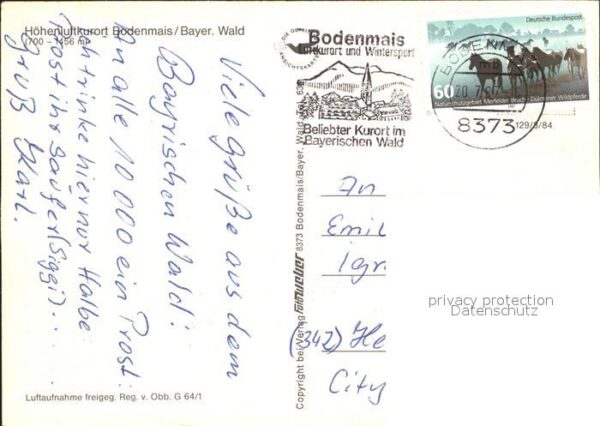 Höhenluftkurort Bodenmais/Bayer. Wald
(700 - 1456 m)
Viele grüße aus dem
Bayrischen Wald!
An alle 10 000 ein Prost!
Ich trinke hier nur Halbe
Prost ihr säufer (Siggi)...
Gruß Karl.
Luftaufnahme freigeg. Reg. v. Obb. G 64/1
Copyright bei Verlag
8373 Bodenmais/Bayer. Wald
DIE
ANSICHTSKARTE
Bodenmais
Luftkurort und Wintersport
Beliebter Kurort im
Bayerischen Wald
BODENM
20. 7.
8373
Deutsche Bundespost
60
Naturschutzgebiet Merfelder Bruch · Dülmener Wildpferde
129/8/84
An
Emil
(342) He
City
privacy protection
Datenschutz